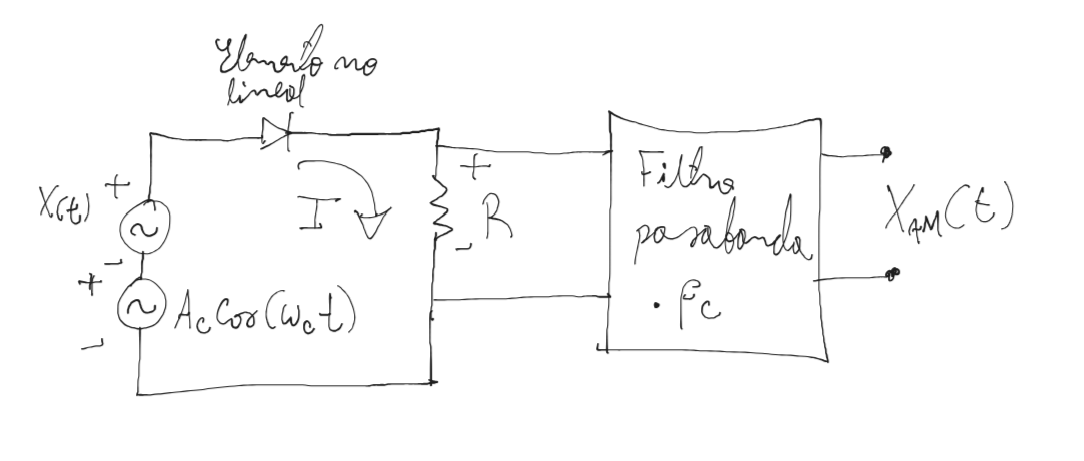 Elemento no
lineal
X(t)
+
-
I
+
-
R
+
-
Ac Cos(ωct)
Filtro
pasabanda
· fc
XAM(t)